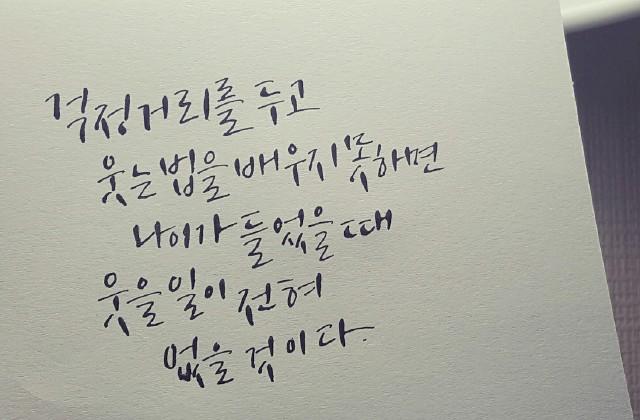 걱정거리를 두고
웃는 법을 배우지 못하면
나이가 들었을 때
웃을 일이 전혀
없을 것이다.